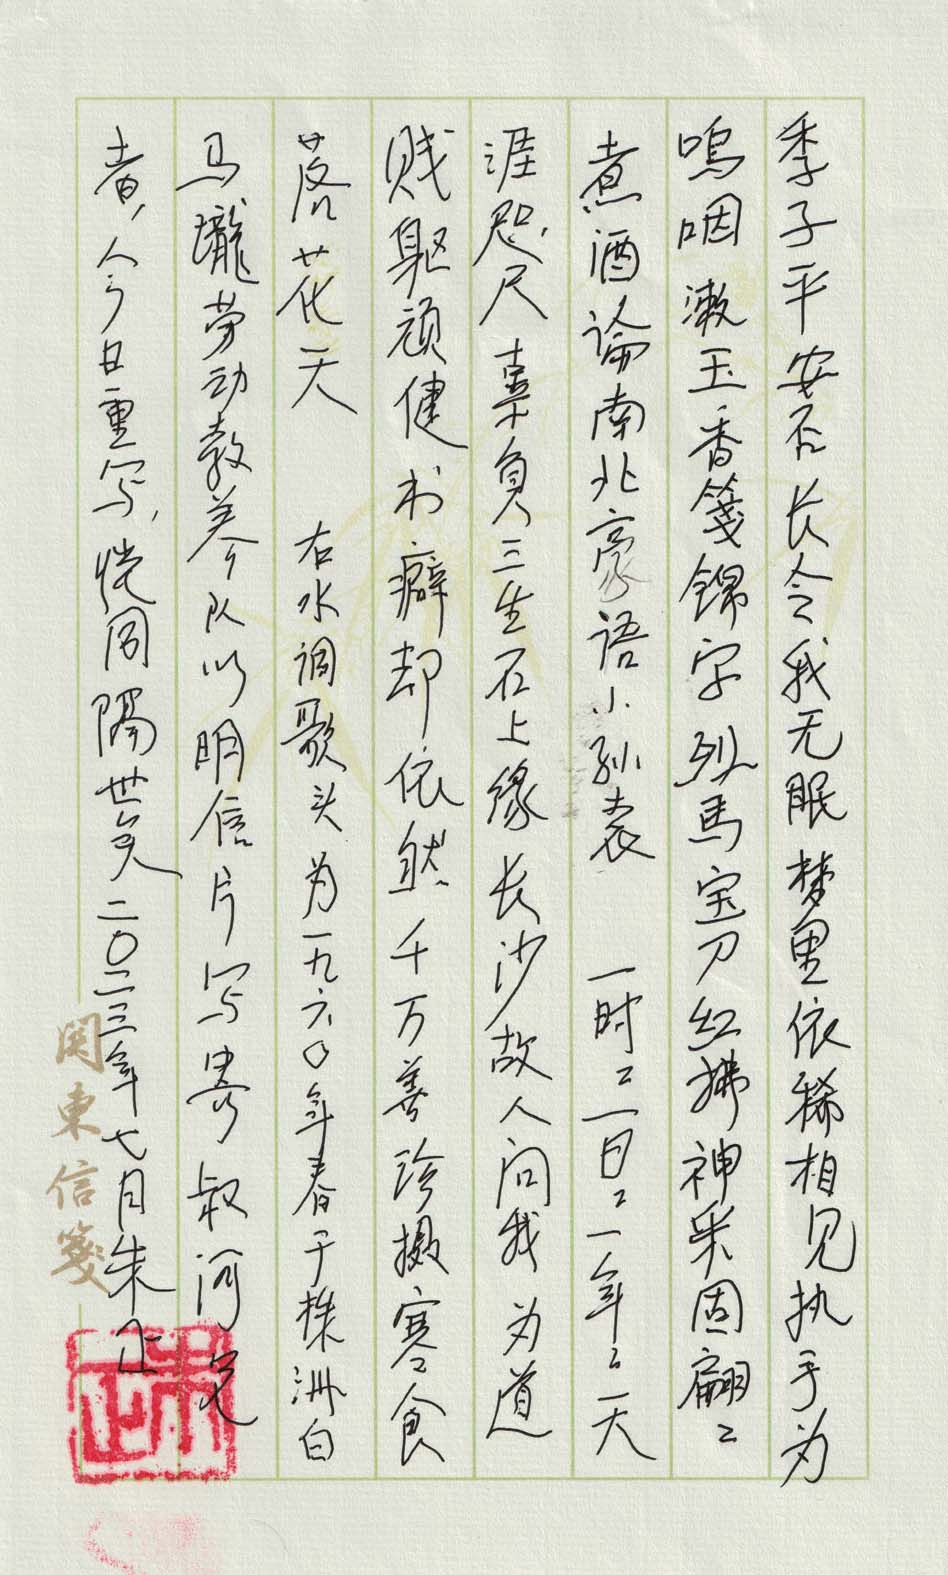 季子平安否长令我无眠梦里依稀相见执手为
呜咽漱玉香笺锦字烈马宝刀红拂神采固翩〻
煮酒论南北豪语小孙袁 一时〻一日〻一年〻天
涯咫尺辜负三生石上缘长沙故人问我为道
贱躯顽健书癖却依然千万善珍摄寒食
落花天 右水调歌头为一九六〇年春于株洲白
马垅劳动教养队以明信片写寄叔河兄
者，今日重写，恍同隔世矣二〇二三年七月朱正
関東信箋
朱正